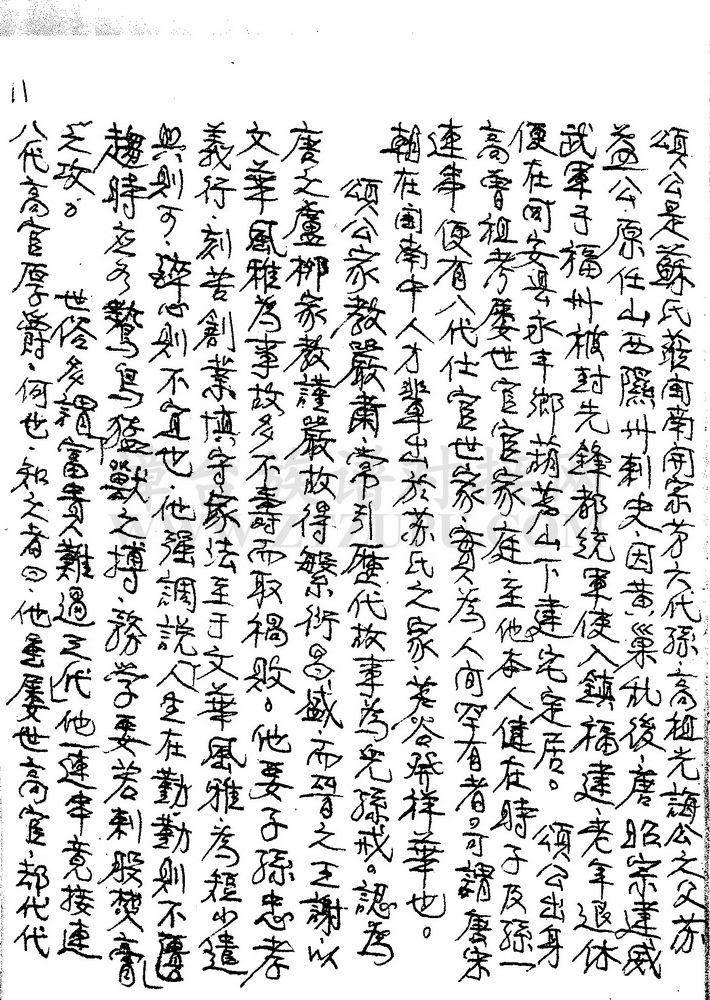 頌公是蘇氏蔬閩南開宗芳六代孫高祖光誨公之父苏
益公原任山西隰州刺史因黄巢乱後唐昭宗建威
武軍于福州被封先鋒都統軍使入鎮福建老年退休
便在同安县永丰鄉葫芦山下建宅定居。 頌公出身
高曾祖考屢世官宦家庭至他本人健在時子及孫一
連串便有八代仕宦世家實為人间罕有者可謂唐宋
朝在閩南中人才輩出於苏氏之家芦谷發祥華也。
頌公家教嚴肅常引歷代故事為兒孫戒。認為
唐之盧柳家教謹嚴故得繁衍昌盛而晋之王謝以
文華風雅為事故多不壽而取禍敗。他要子孫忠孝
義行刻苦創業慎守家法至于文華風雅為短小遣
興則可醉心則不宜也他强調説「人生在勤勤則不匱
趨時应如鷙鳥猛獸之搏務学要若刺股焚膏」
之攻。 世俗多謂「富貴難過三代」他一連串竟接連
八代高官厚爵何也知之者曰他虽屢世高官都代代
11